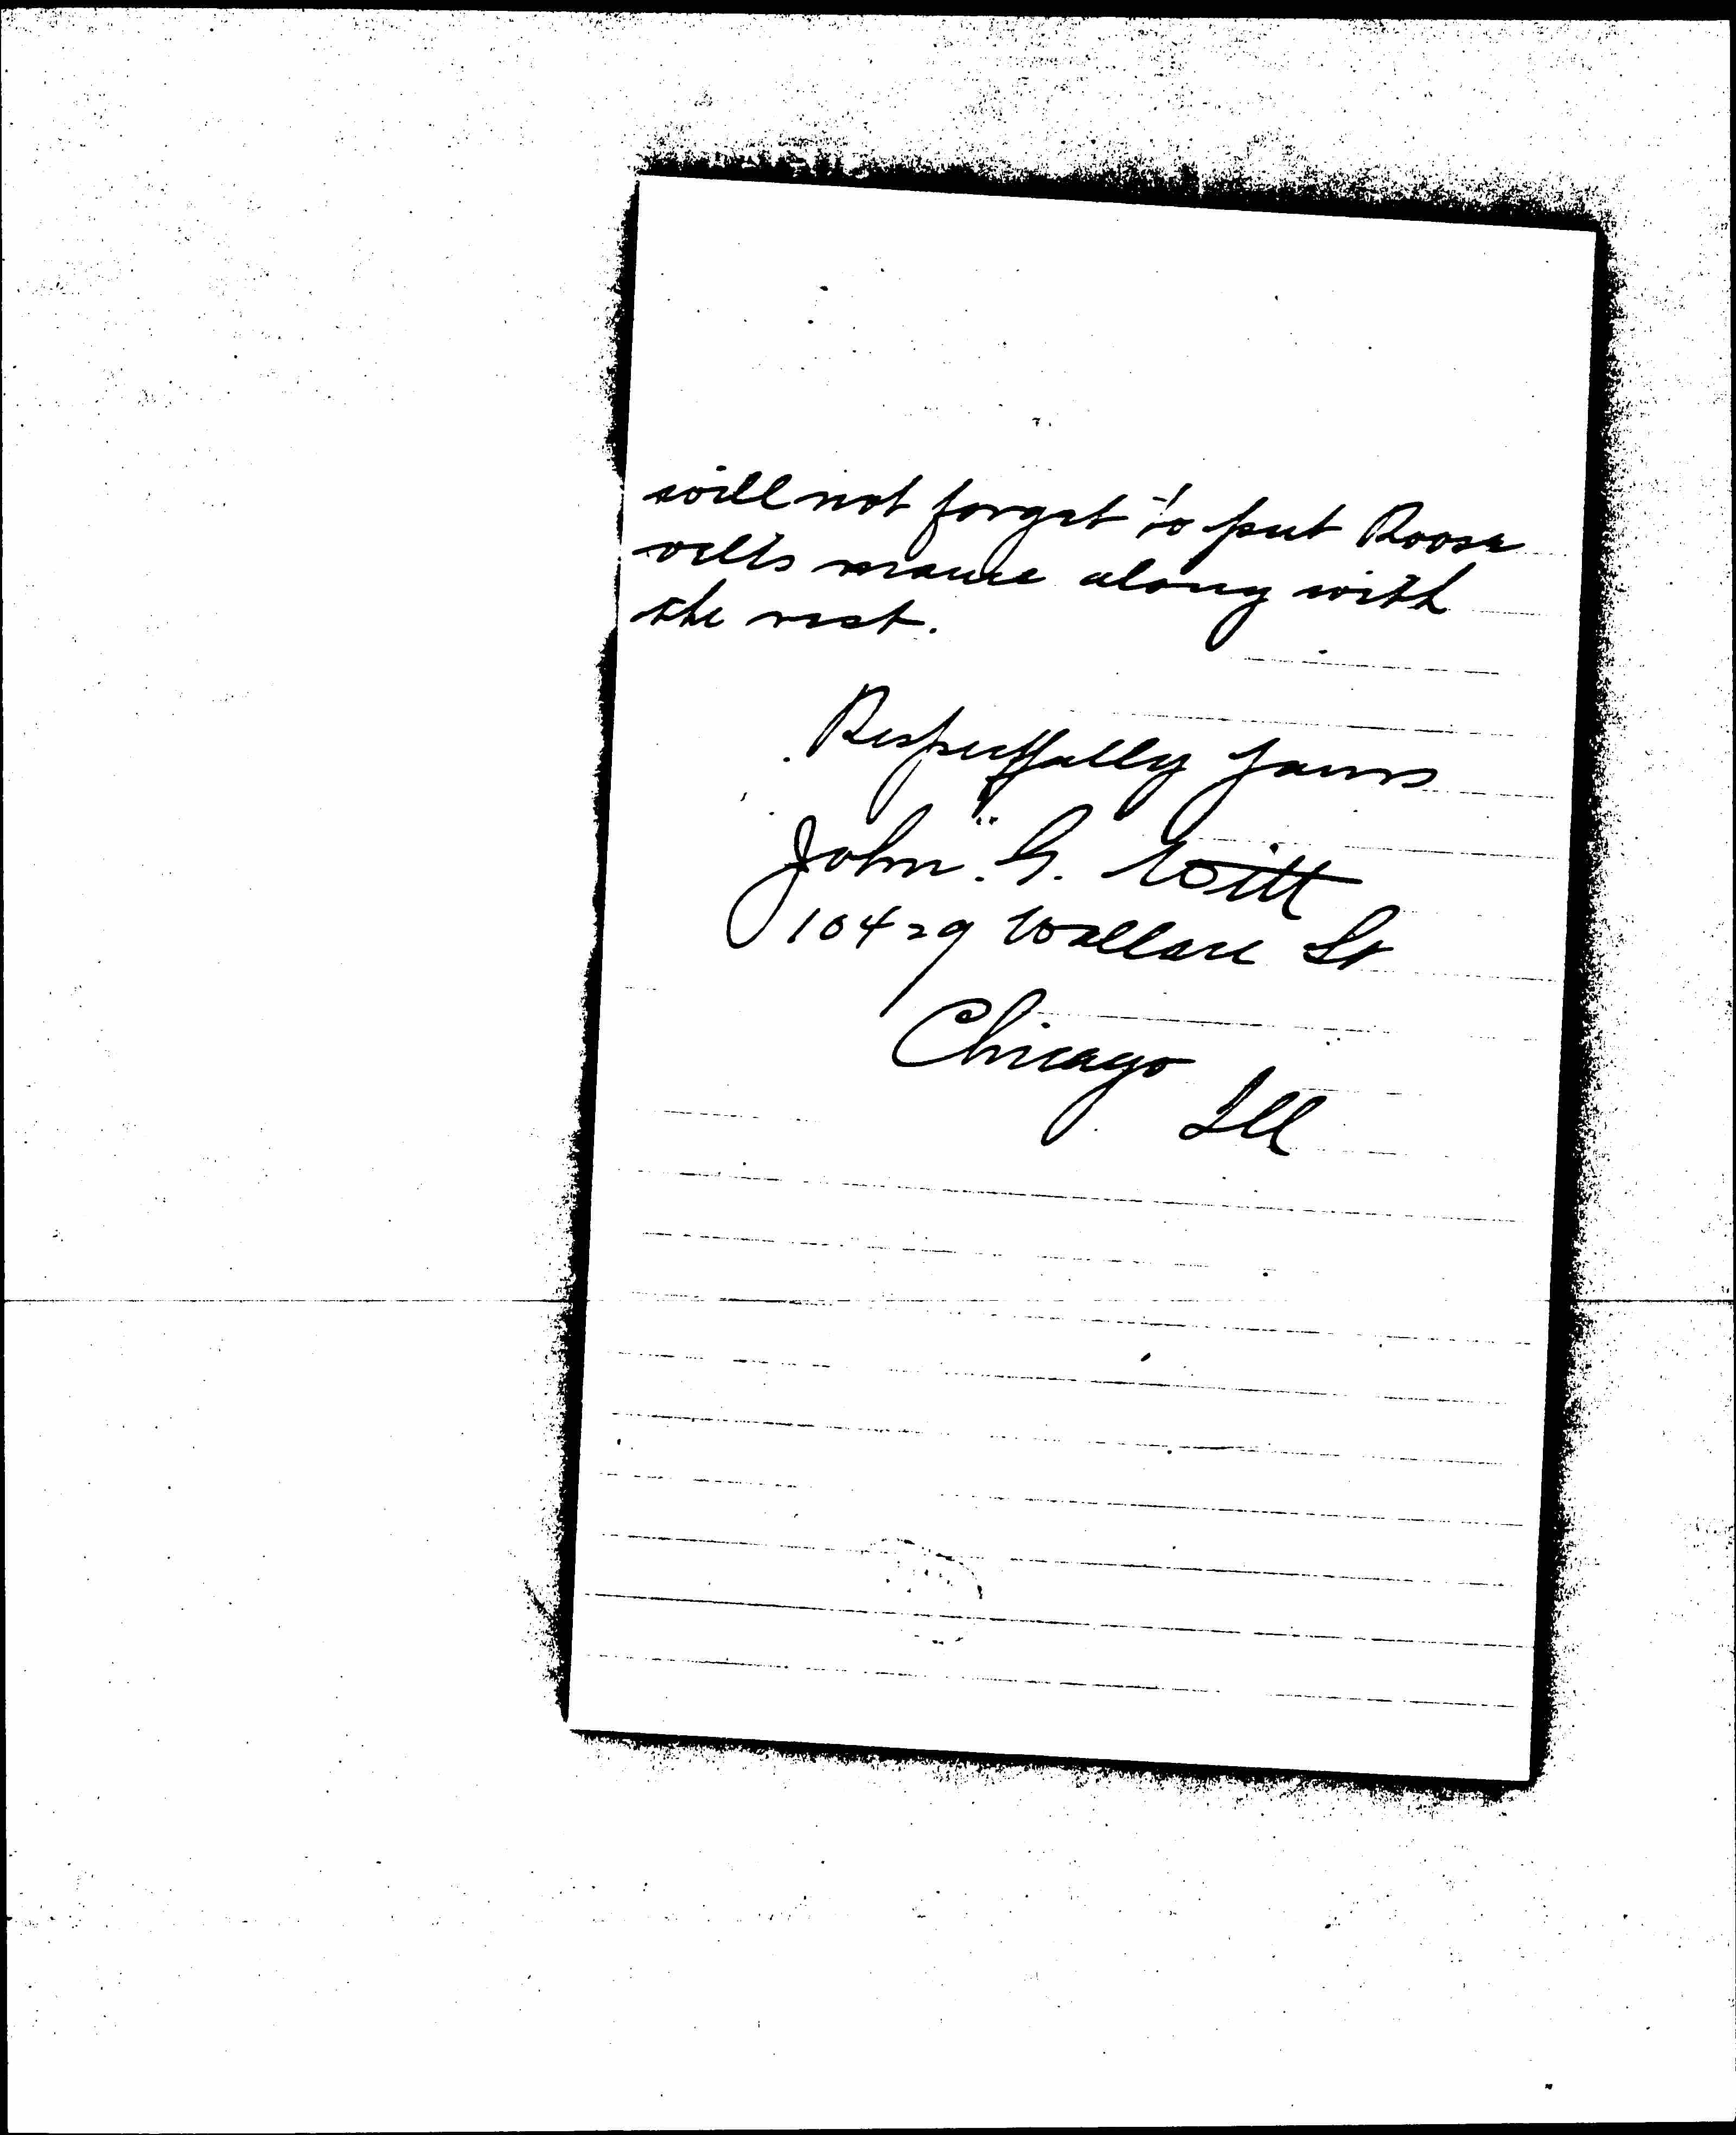 will not forget to put Roose
velts name along with
the rest.
Respectfully Yours
John G. Witt
10429 Wallace St
Chicago
Ill